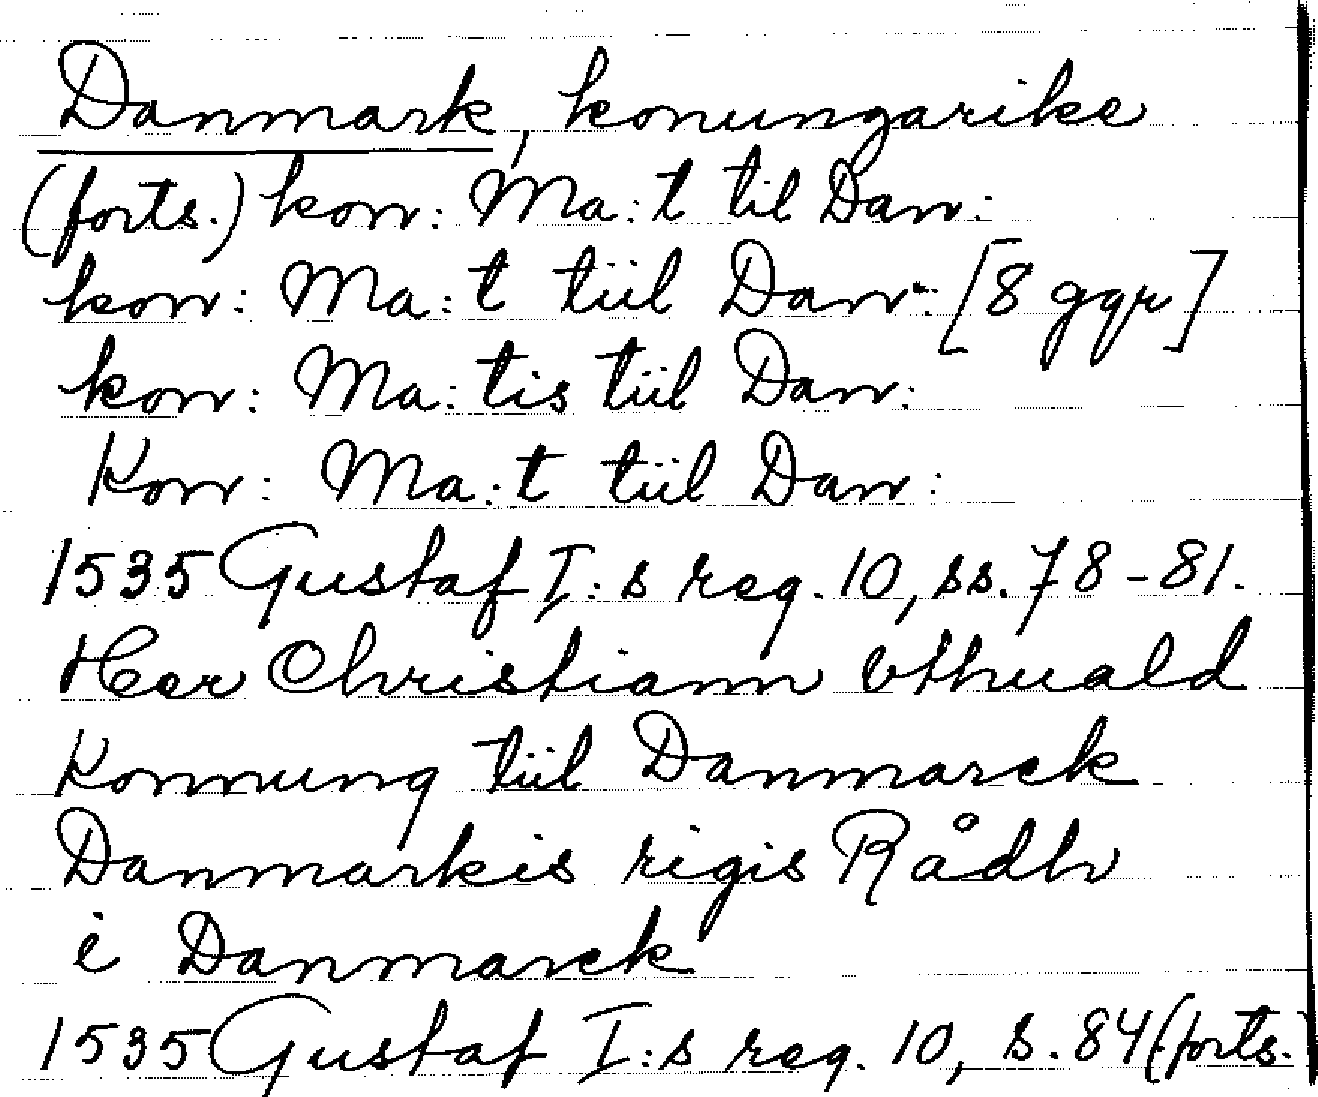 Danmark, konungarike
(forts.) kon: Ma:t til Dan:
kon: Ma:t tiil Dan: [8 ggr]
kon: Ma:tis tiil Dan:
Kon: Ma:t tiil Dan:
1535 Gustaf I:s reg. 10, ss. 78-81.
Her Christiann vthuald
Konnung tiil Danmarck
Danmarkis rigis Rådh
i Danmarck
1535 Gustaf I:s reg. 10, s. 84 (forts.)